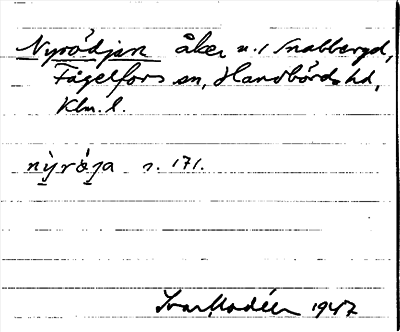 Nyrödjan åker u. / Snabbergd,
Fågelfors sn, Handbörds hd,
Klm. l.
nỳrö̀ja s. 171.
Ivar Modéer 1947